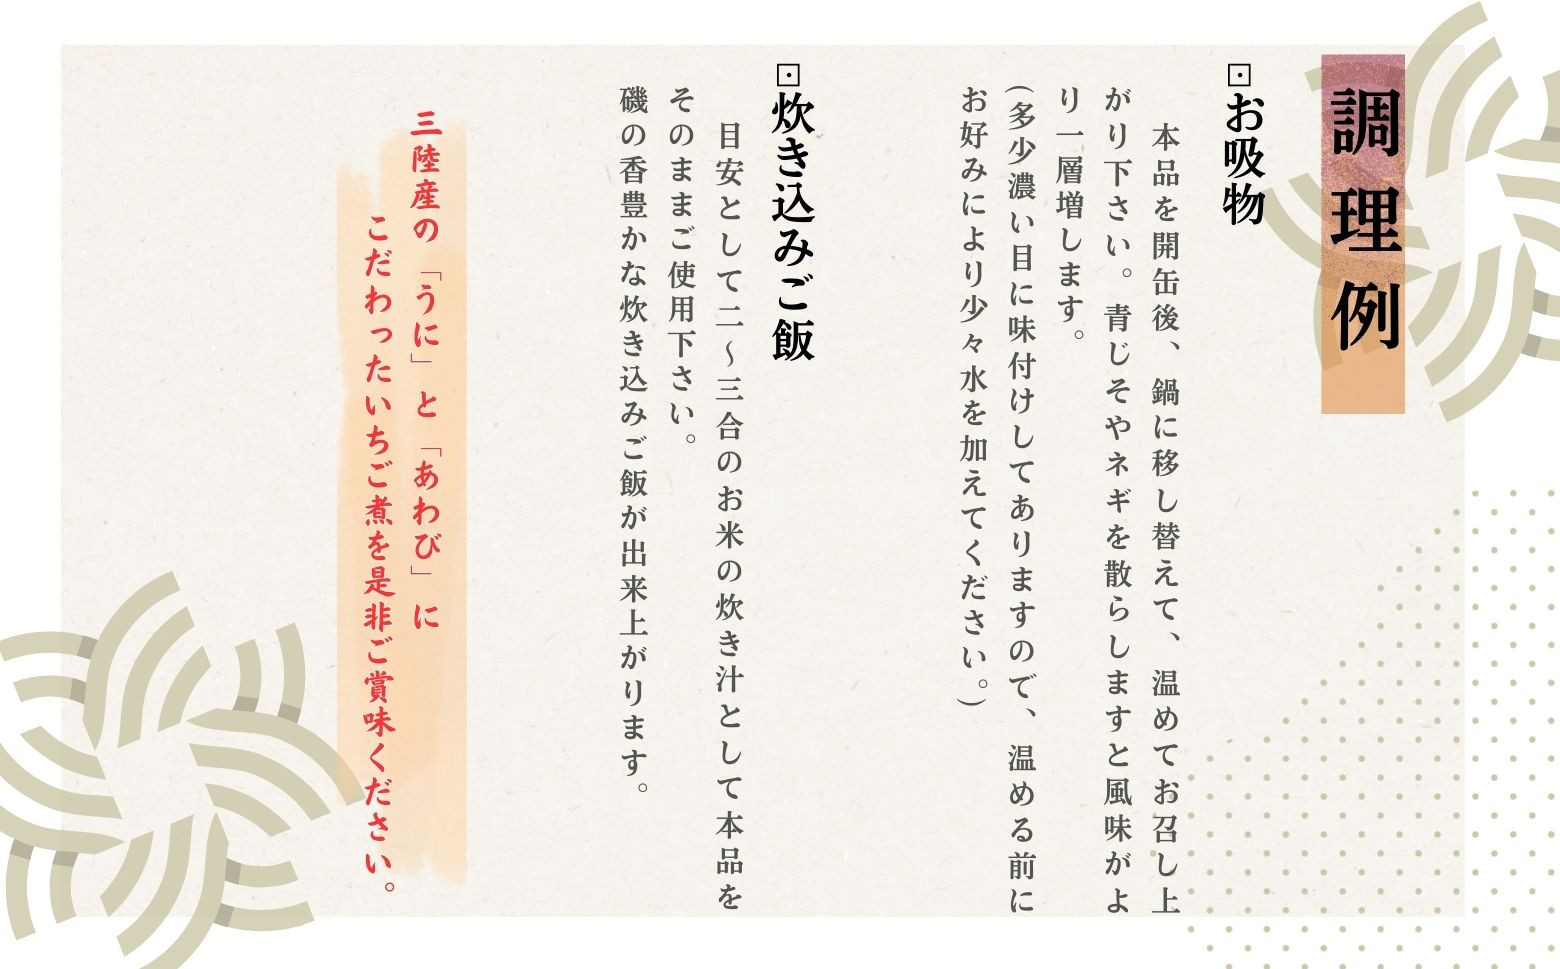 調理例
⊡お吸物
本品を開缶後、鍋に移し替えて、温めてお召し上
がり下さい。青じそやネギを散らしますと風味がよ
り一層増します。
(多少濃い目に味付けしてありますので、温める前に
お好みにより少々水を加えてください。)
⊡炊き込みご飯
目安として二～三合のお米の炊き汁として本品を
そのままご使用下さい。
磯の香豊かな炊き込みご飯が出来上がります。
三陸産の「うに」と「あわび」に
こだわったいちご煮を是非ご賞味ください。